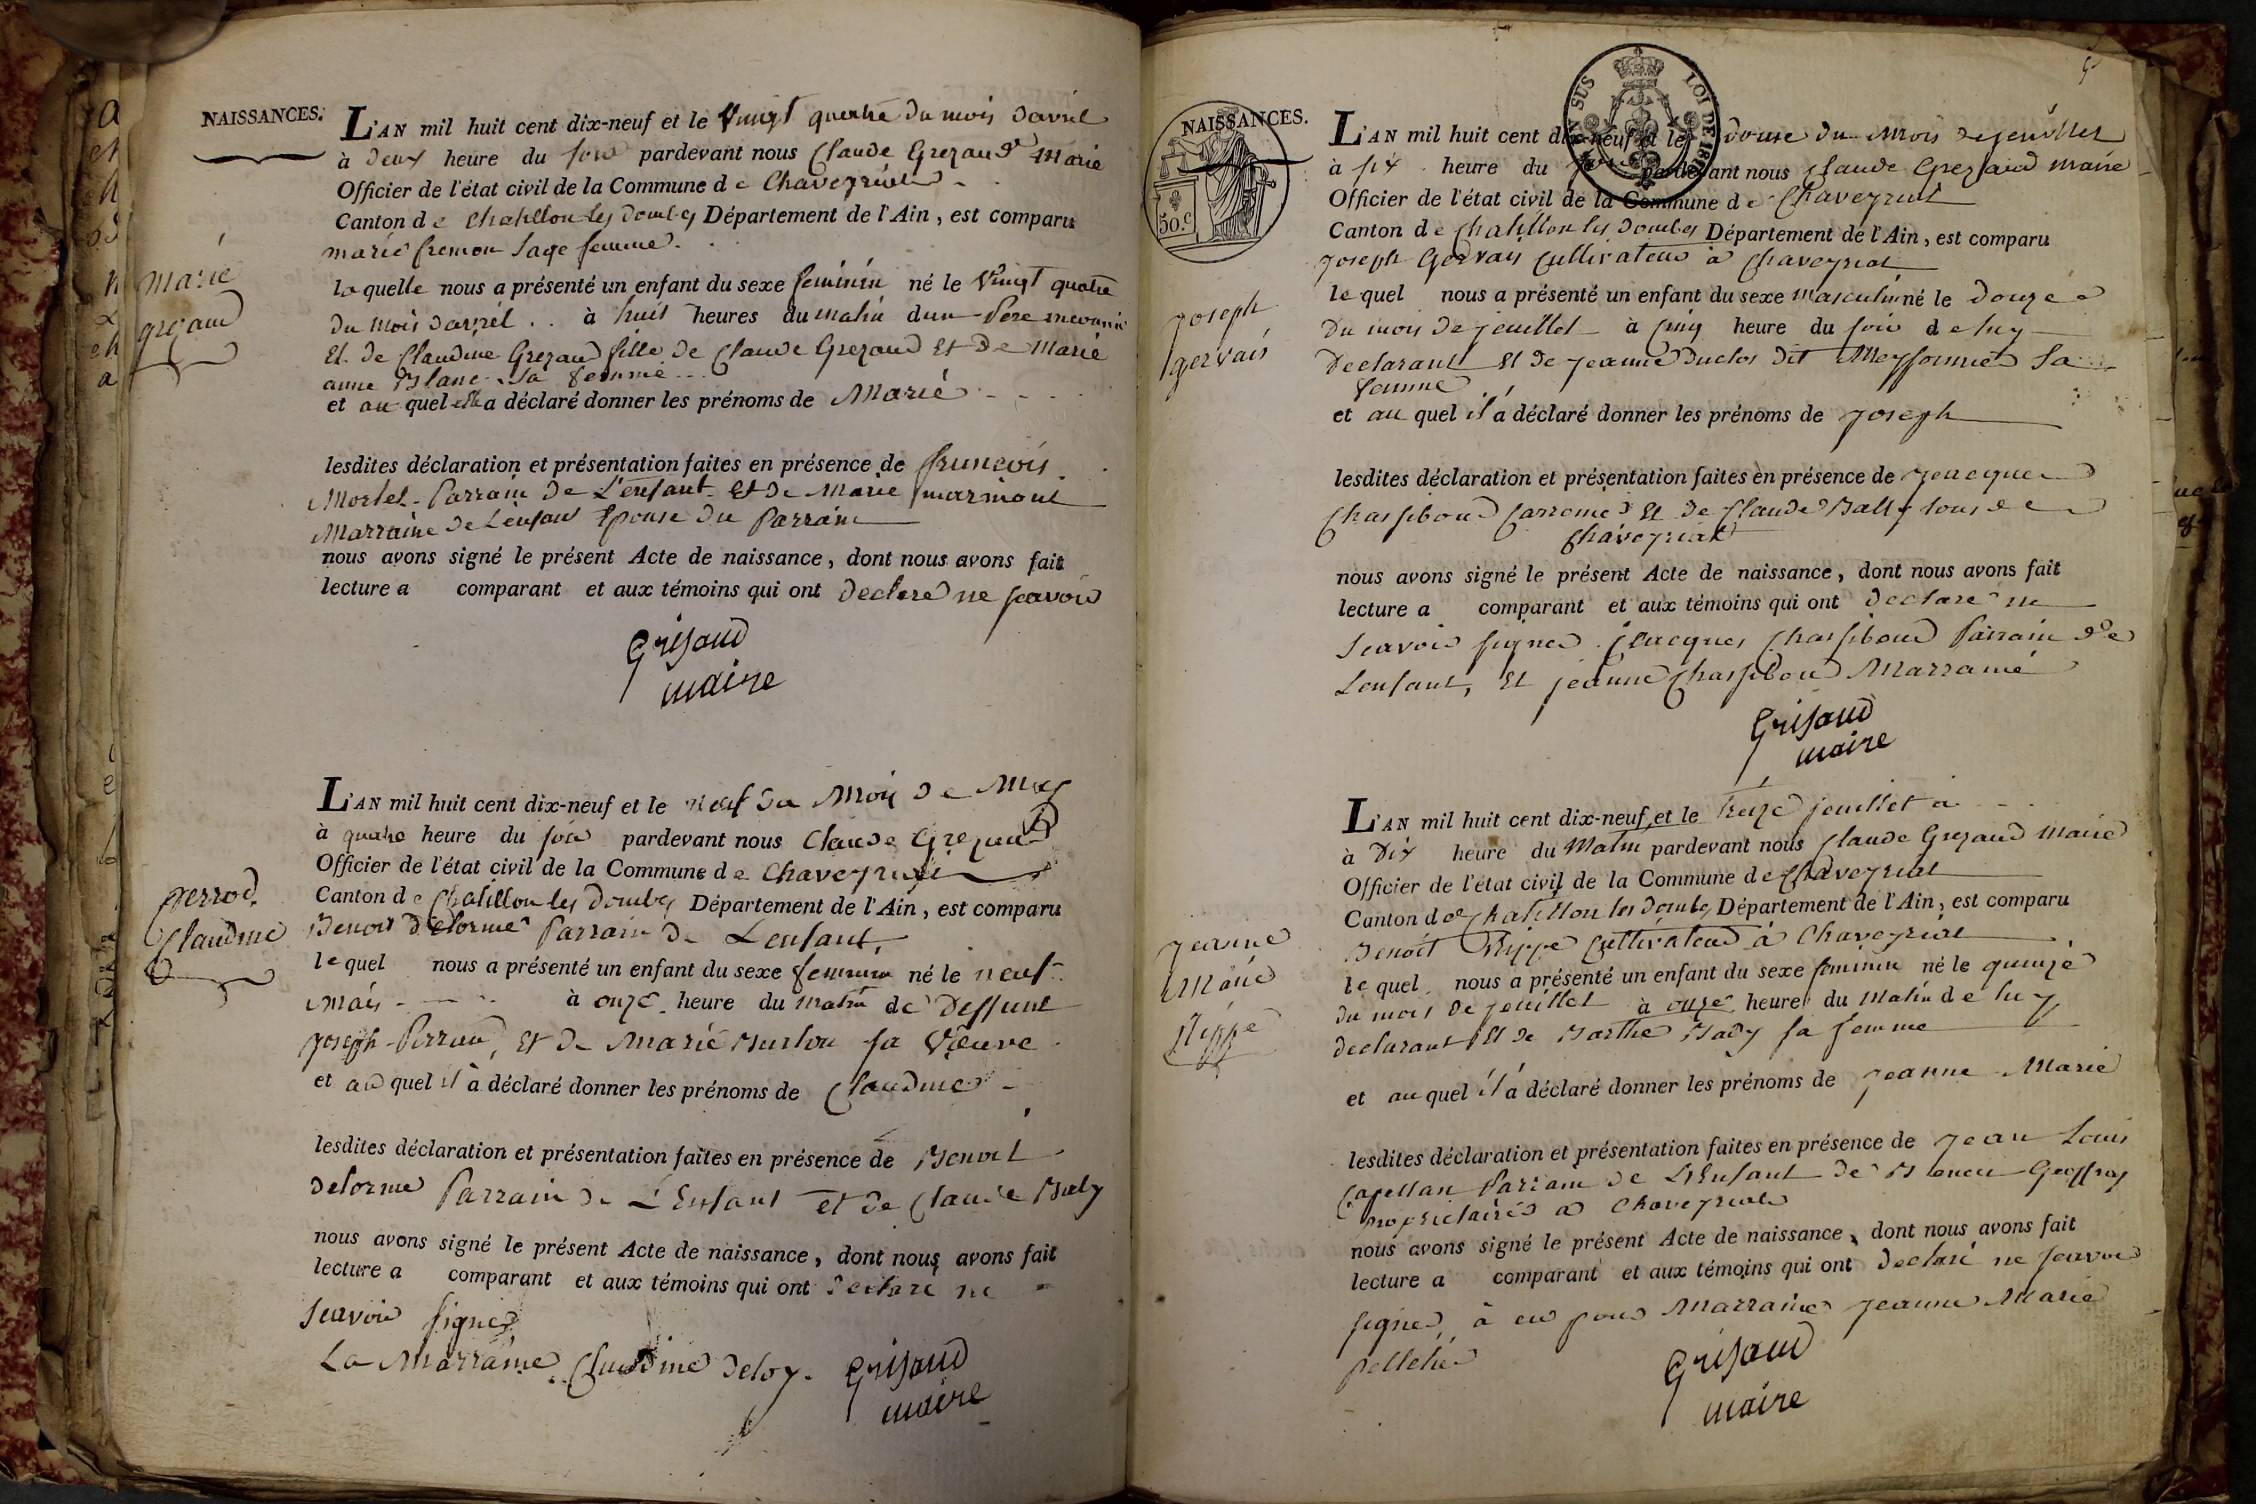 NAISSANCES.
L'AN mil huit cent dix-neuf et le vingt quatre du mois davril
à deux heure du soir pardevant nous Claude Grezaud Marie
Officier de l'état civil de la Commune de Chaveyriat
Canton de Chatillon les Dombes Département de l'Ain, est comparu
marie fremon Sage femme.
marie
grezaud
laquelle nous a présenté un enfant du sexe feminin né le Vingt quatre
du mois davril . . à huit heures du matin dun Pere inconnu
Et de Claudine Grezaud fille de Claude Grezaud Et De Marie
anne Blanc Sa femme
et au quel elle a déclaré donner les prénoms de Marie
lesdites déclaration et présentation faites en présence de francois
Mortel Parrain De L'enfant Et De Marie marmont
Marraine De Lenfant Epouse Du Parrain
nous avons signé le présent Acte de naissance, dont nous avons fait
lecture a comparant et aux témoins qui ont declare ne scavoir
Grisaud
maire
L'AN mil huit cent dix-neuf et le neuf du Mois De May
à quatre heure du soir pardevant nous Claude Grezaud
Officier de l'état civil de la Commune de Chaveyriat
Canton de Chatillon les Dombes Département de l'Ain, est comparu
Benoit Delorme Parrain De Lenfant
perrod
Claudine
le quel nous a présenté un enfant du sexe feminin né le neuf
mais à onze heure du matin de Deffunt
Joseph Perrau, Et De Marie Burlon sa Veuve
et au quel il a déclaré donner les prénoms de Claudine
lesdites déclaration et présentation faites en présence de Benoit
delorme Parrain De L'Enfant et de Claude Baly
nous avons signé le présent Acte de naissance, dont nous avons fait
lecture a comparant et aux témoins qui ont declare ne
scavoir signer
La Marraine Claudine Deloy. Grisaud
maire
5
NAISSANCES.
50.c
SUS LOI DE 1816
L'AN mil huit cent dix-neuf et le douse du Mois de jeuillet
à six heure du soir pardevant nous Claude Grezaud Maire
Officier de l'état civil de la Commune de Chaveyriat
Canton de Chatillon les Dombes Département de l'Ain, est comparu
joseph Gervais Cultivateur à Chaveyriat
joseph
gervais
le quel nous a présenté un enfant du sexe masculin né le douze
Du mois De jeuillet à cinq heure du soir de luy
Declarant Et De jeanne Duclos dit Meyssonnier Sa
femme
et au quel il a déclaré donner les prénoms de joseph
lesdites déclaration et présentation faites en présence de jeacque
Chassiboud Et De Claude Bally tous de
Chaveyriat
nous avons signé le présent Acte de naissance, dont nous avons fait
lecture a comparant et aux témoins qui ont declare ne
scavoir signer jeacques Chassiboud Parrain de
Lenfant, Et jeanne Chassiboud Marraine
Grisaud
maire
L'AN mil huit cent dix-neuf et le treize jeuillet a
à Dix heure du Matin pardevant nous Claude Grezaud Maire
Officier de l'état civil de la Commune de Chaveyriat
Canton de Chatillon les Dombes Département de l'Ain, est comparu
Benoit Cultivateur à Chaveyriat
jeanne
Marie
le quel nous a présenté un enfant du sexe feminin né le quinze
du mois De jeuillet à onze heure du Matin de luy
declarant Et De Marthe Bady sa femme
et au quel il a déclaré donner les prénoms de jeanne Marie
lesdites déclaration et présentation faites en présence de jean Louis
Capellan Parrain De L'Enfant De Geoffray
proprietaires a Chaveyriat
nous avons signé le présent Acte de naissance, dont nous avons fait
lecture a comparant et aux témoins qui ont declaré ne scavoir
signer, à eu pour Marraine jeanne Marie
pelletier
Grisaud
maire